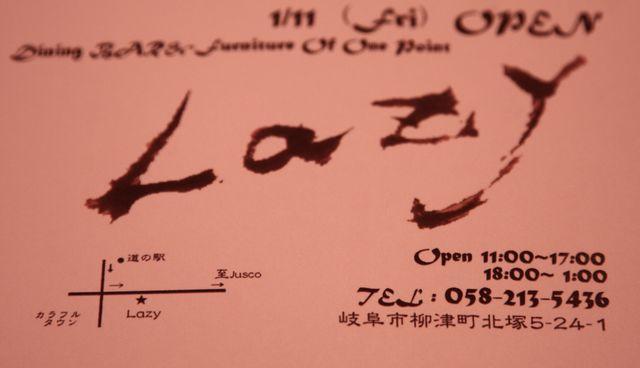 1/11 (Fri) OPEN
Dining BAR&Furniture Of One Point
Lazy
道の駅
至Jusco
カラフル
タウン
Lazy
Open 11:00~17:00
18:00~ 1:00
TEL : 058-213-5436
岐阜市柳津町北塚5-24-1